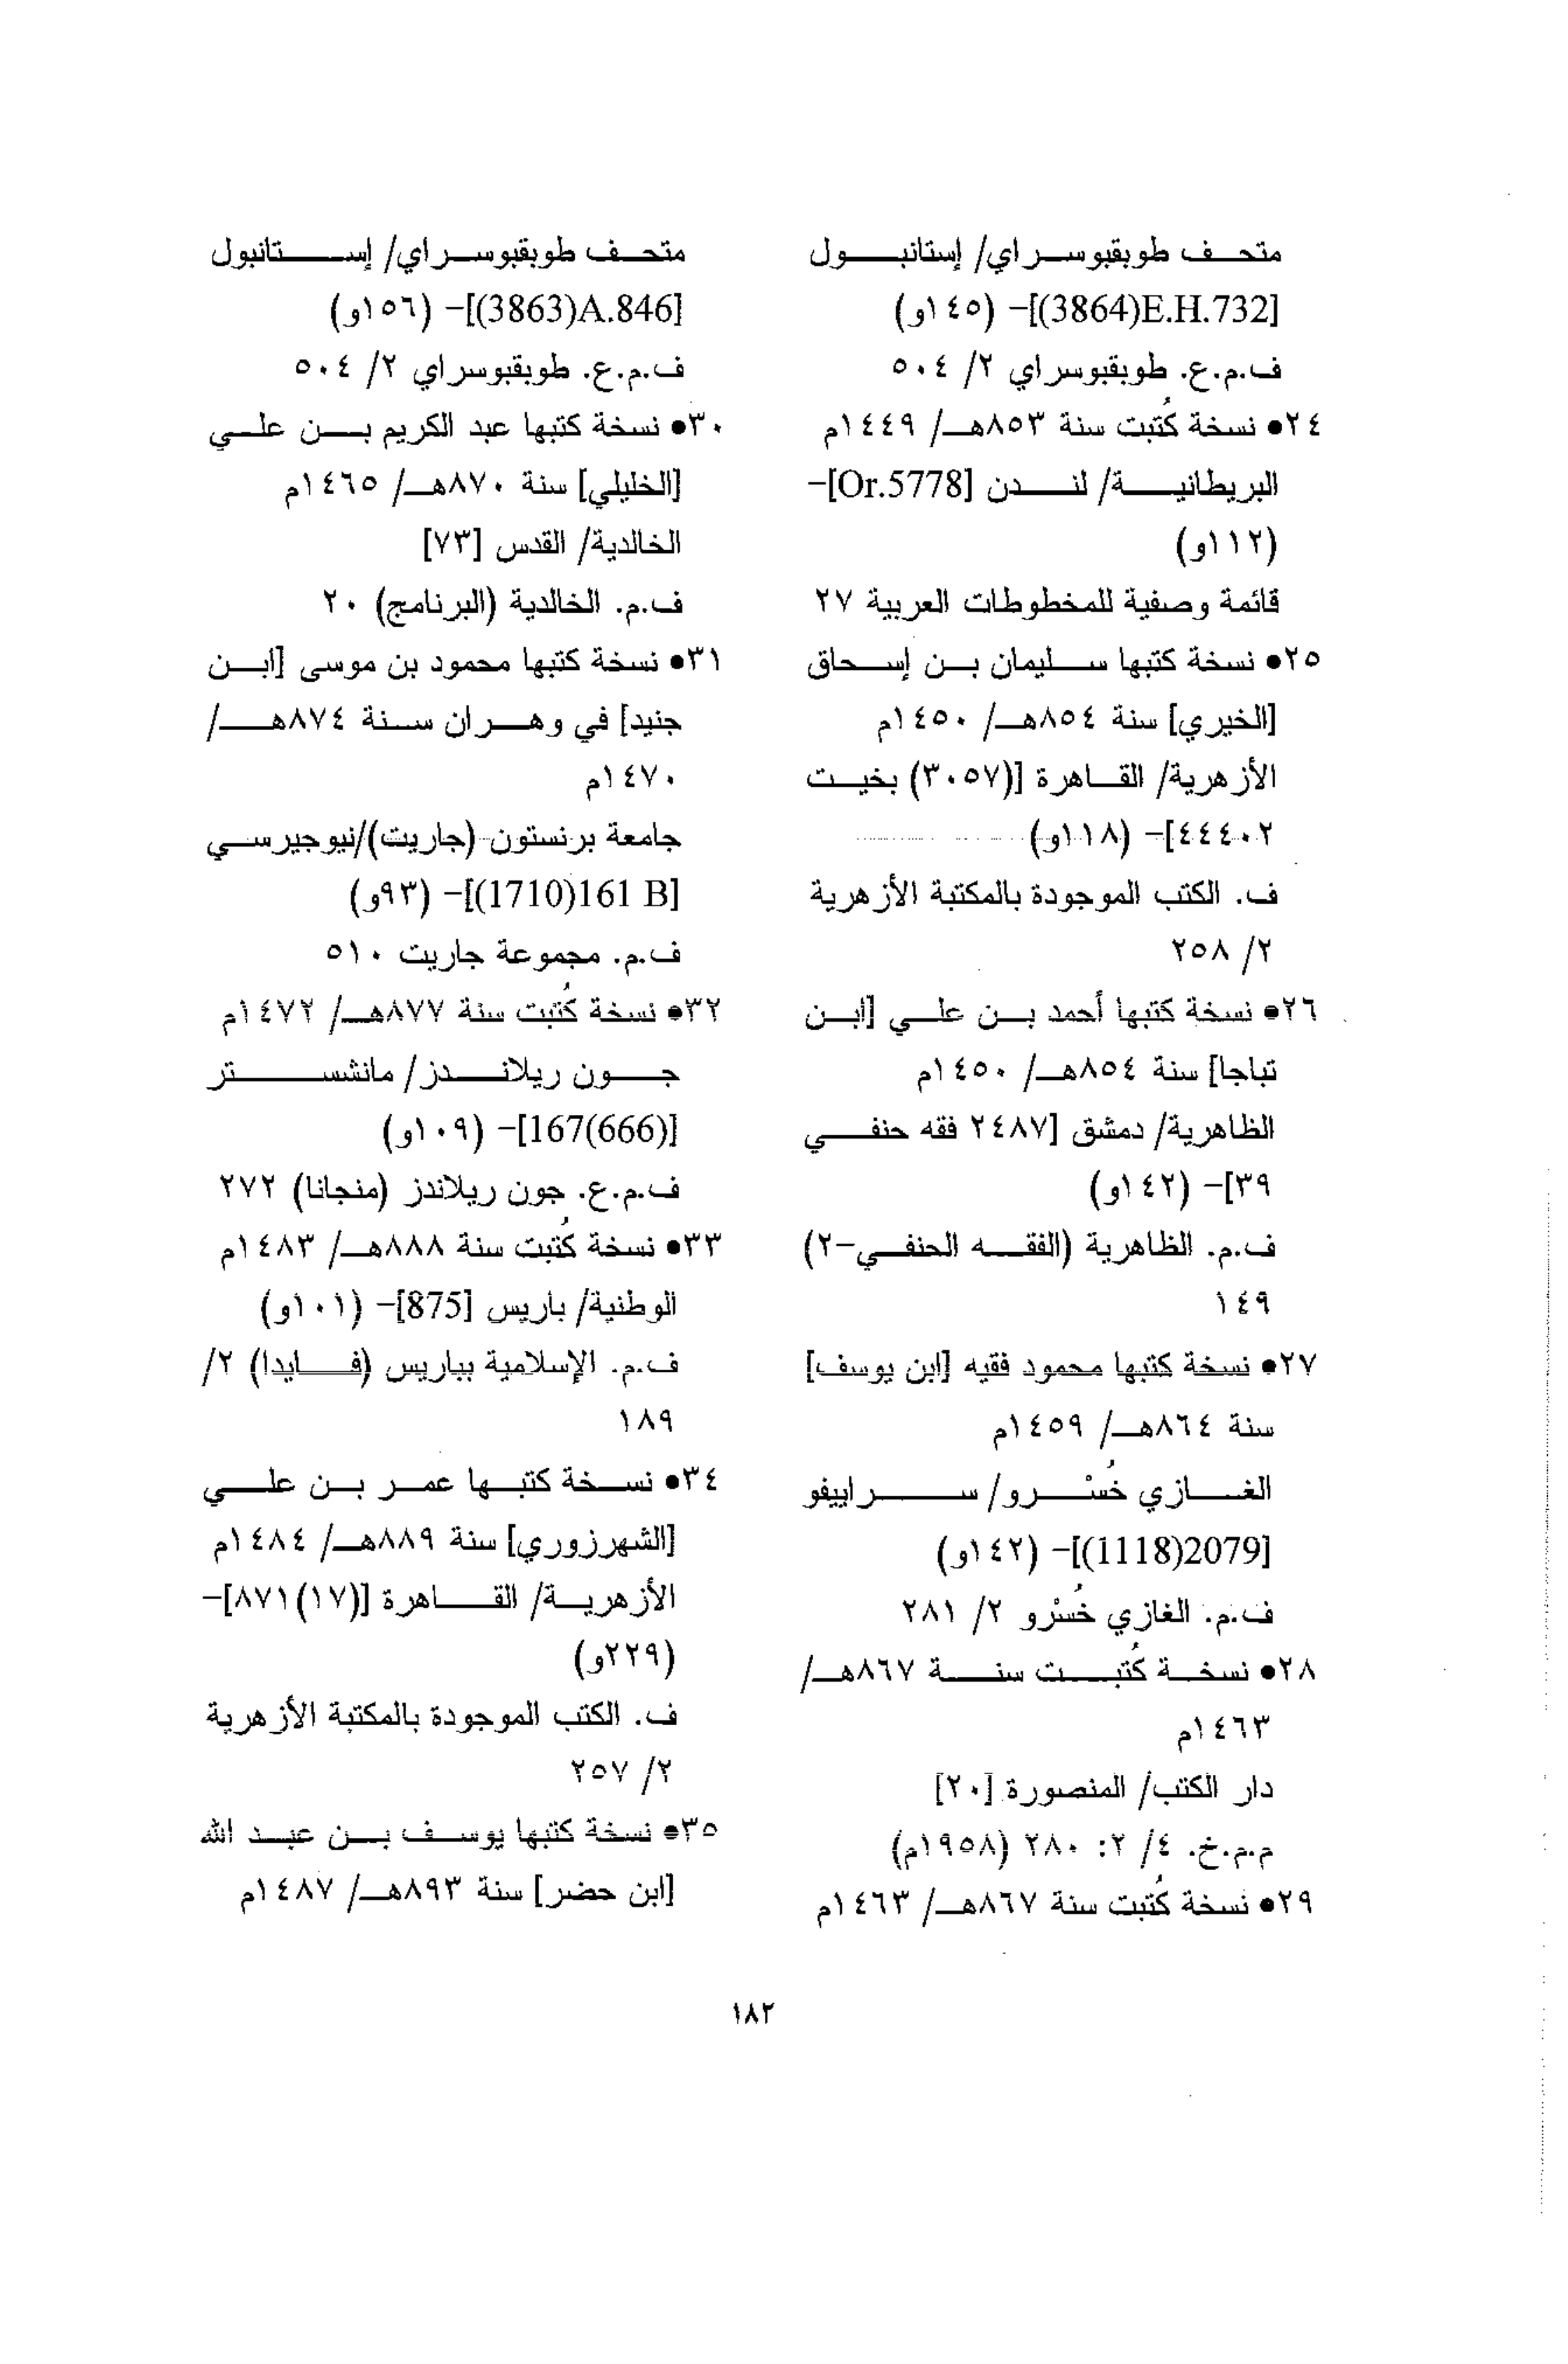 متحف طوبقبوسراي/ إستانبول
[E.H.732(3864)]- (١٤٥و)
ف.م.ع. طوبقبوسراي ٢/ ٥٠٤
٢٤• نسخة كُتبت سنة ٨٥٣هـ/ ١٤٤٩م
البريطانية/ لندن [Or.5778]-
(١١٢و)
قائمة وصفية للمخطوطات العربية ٢٧
٢٥• نسخة كتبها سليمان بن إسحاق
[الخيري] سنة ٨٥٤هـ/ ١٤٥٠م
الأزهرية/ القاهرة [(٣٠٥٧) بخيت
٤٤٤٠٢]- (١١٨و)
ف. الكتب الموجودة بالمكتبة الأزهرية
٢/ ٢٥٨
٢٦• نسخة كتبها أحمد بن علي [ابن
تباجا] سنة ٨٥٤هـ/ ١٤٥٠م
الظاهرية/ دمشق [٢٤٨٧ فقه حنفي
٣٩]- (١٤٢و)
ف.م. الظاهرية (الفقه الحنفي-٢)
١٤٩
٢٧• نسخة كتبها محمود فقيه [ابن يوسف]
سنة ٨٦٤هـ/ ١٤٥٩م
الغازي خُسْرو/ سراييفو
[2079(1118)]- (١٤٢و)
ف.م. الغازي خُسْرو ٢/ ٢٨١
٢٨• نسخة كُتبت سنة ٨٦٧هـ/
١٤٦٣م
دار الكتب/ المنصورة [٢٠]
م.م.خ. ٤/ ٢: ٢٨٠ (١٩٥٨م)
٢٩• نسخة كُتبت سنة ٨٦٧هـ/ ١٤٦٣م
متحف طوبقبوسراي/ إستانبول
[A.846(3863)]- (١٥٦و)
ف.م.ع. طوبقبوسراي ٢/ ٥٠٤
٣٠• نسخة كتبها عبد الكريم بن علي
[الخليلي] سنة ٨٧٠هـ/ ١٤٦٥م
الخالدية/ القدس [٧٣]
ف.م. الخالدية (البرنامج) ٢٠
٣١• نسخة كتبها محمود بن موسى [ابن
جنيد] في وهران سنة ٨٧٤هـ/
١٤٧٠م
جامعة برنستون (جاريت)/نيوجيرسي
[161 B(1710)]- (٩٣و)
ف.م. مجموعة جاريت ٥١٠
٣٢• نسخة كُتبت سنة ٨٧٧هـ/ ١٤٧٢م
جون ريلاندز/ مانشستر
[167(666)]- (١٠٩و)
ف.م.ع. جون ريلاندز (منجانا) ٢٧٢
٣٣• نسخة كُتبت سنة ٨٨٨هـ/ ١٤٨٣م
الوطنية/ باريس [875]- (١٠١و)
ف.م. الإسلامية بباريس (فايدا) ٢/
١٨٩
٣٤• نسخة كتبها عمر بن علي
[الشهرزوري] سنة ٨٨٩هـ/ ١٤٨٤م
الأزهرية/ القاهرة [(١٧)٨٧١]-
(٢٢٩و)
ف. الكتب الموجودة بالمكتبة الأزهرية
٢/ ٢٥٧
٣٥• نسخة كتبها يوسف بن عبد الله
[ابن حضر] سنة ٨٩٣هـ/ ١٤٨٧م
١٨٢